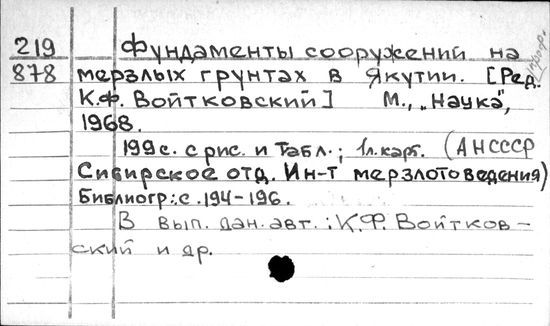 219 Фундаменты сооружений на
878 мерзлых грунтах в Якутии. [Ред.
К.Ф. Войтковский] М., „Наука",
1968.
199 с. с рис. и табл.; 1 л. карт. (АНСССР
Сибирское отд. Ин-т мерзлотоведения)
Библиогр.: с. 194-196.
В вып. дан. авт.: К.Ф. Войтков-
ский и др.